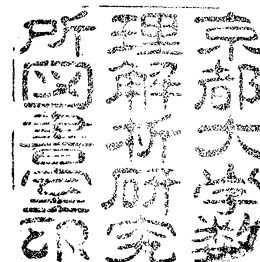 京都大学数
理解析研究
所図書之印